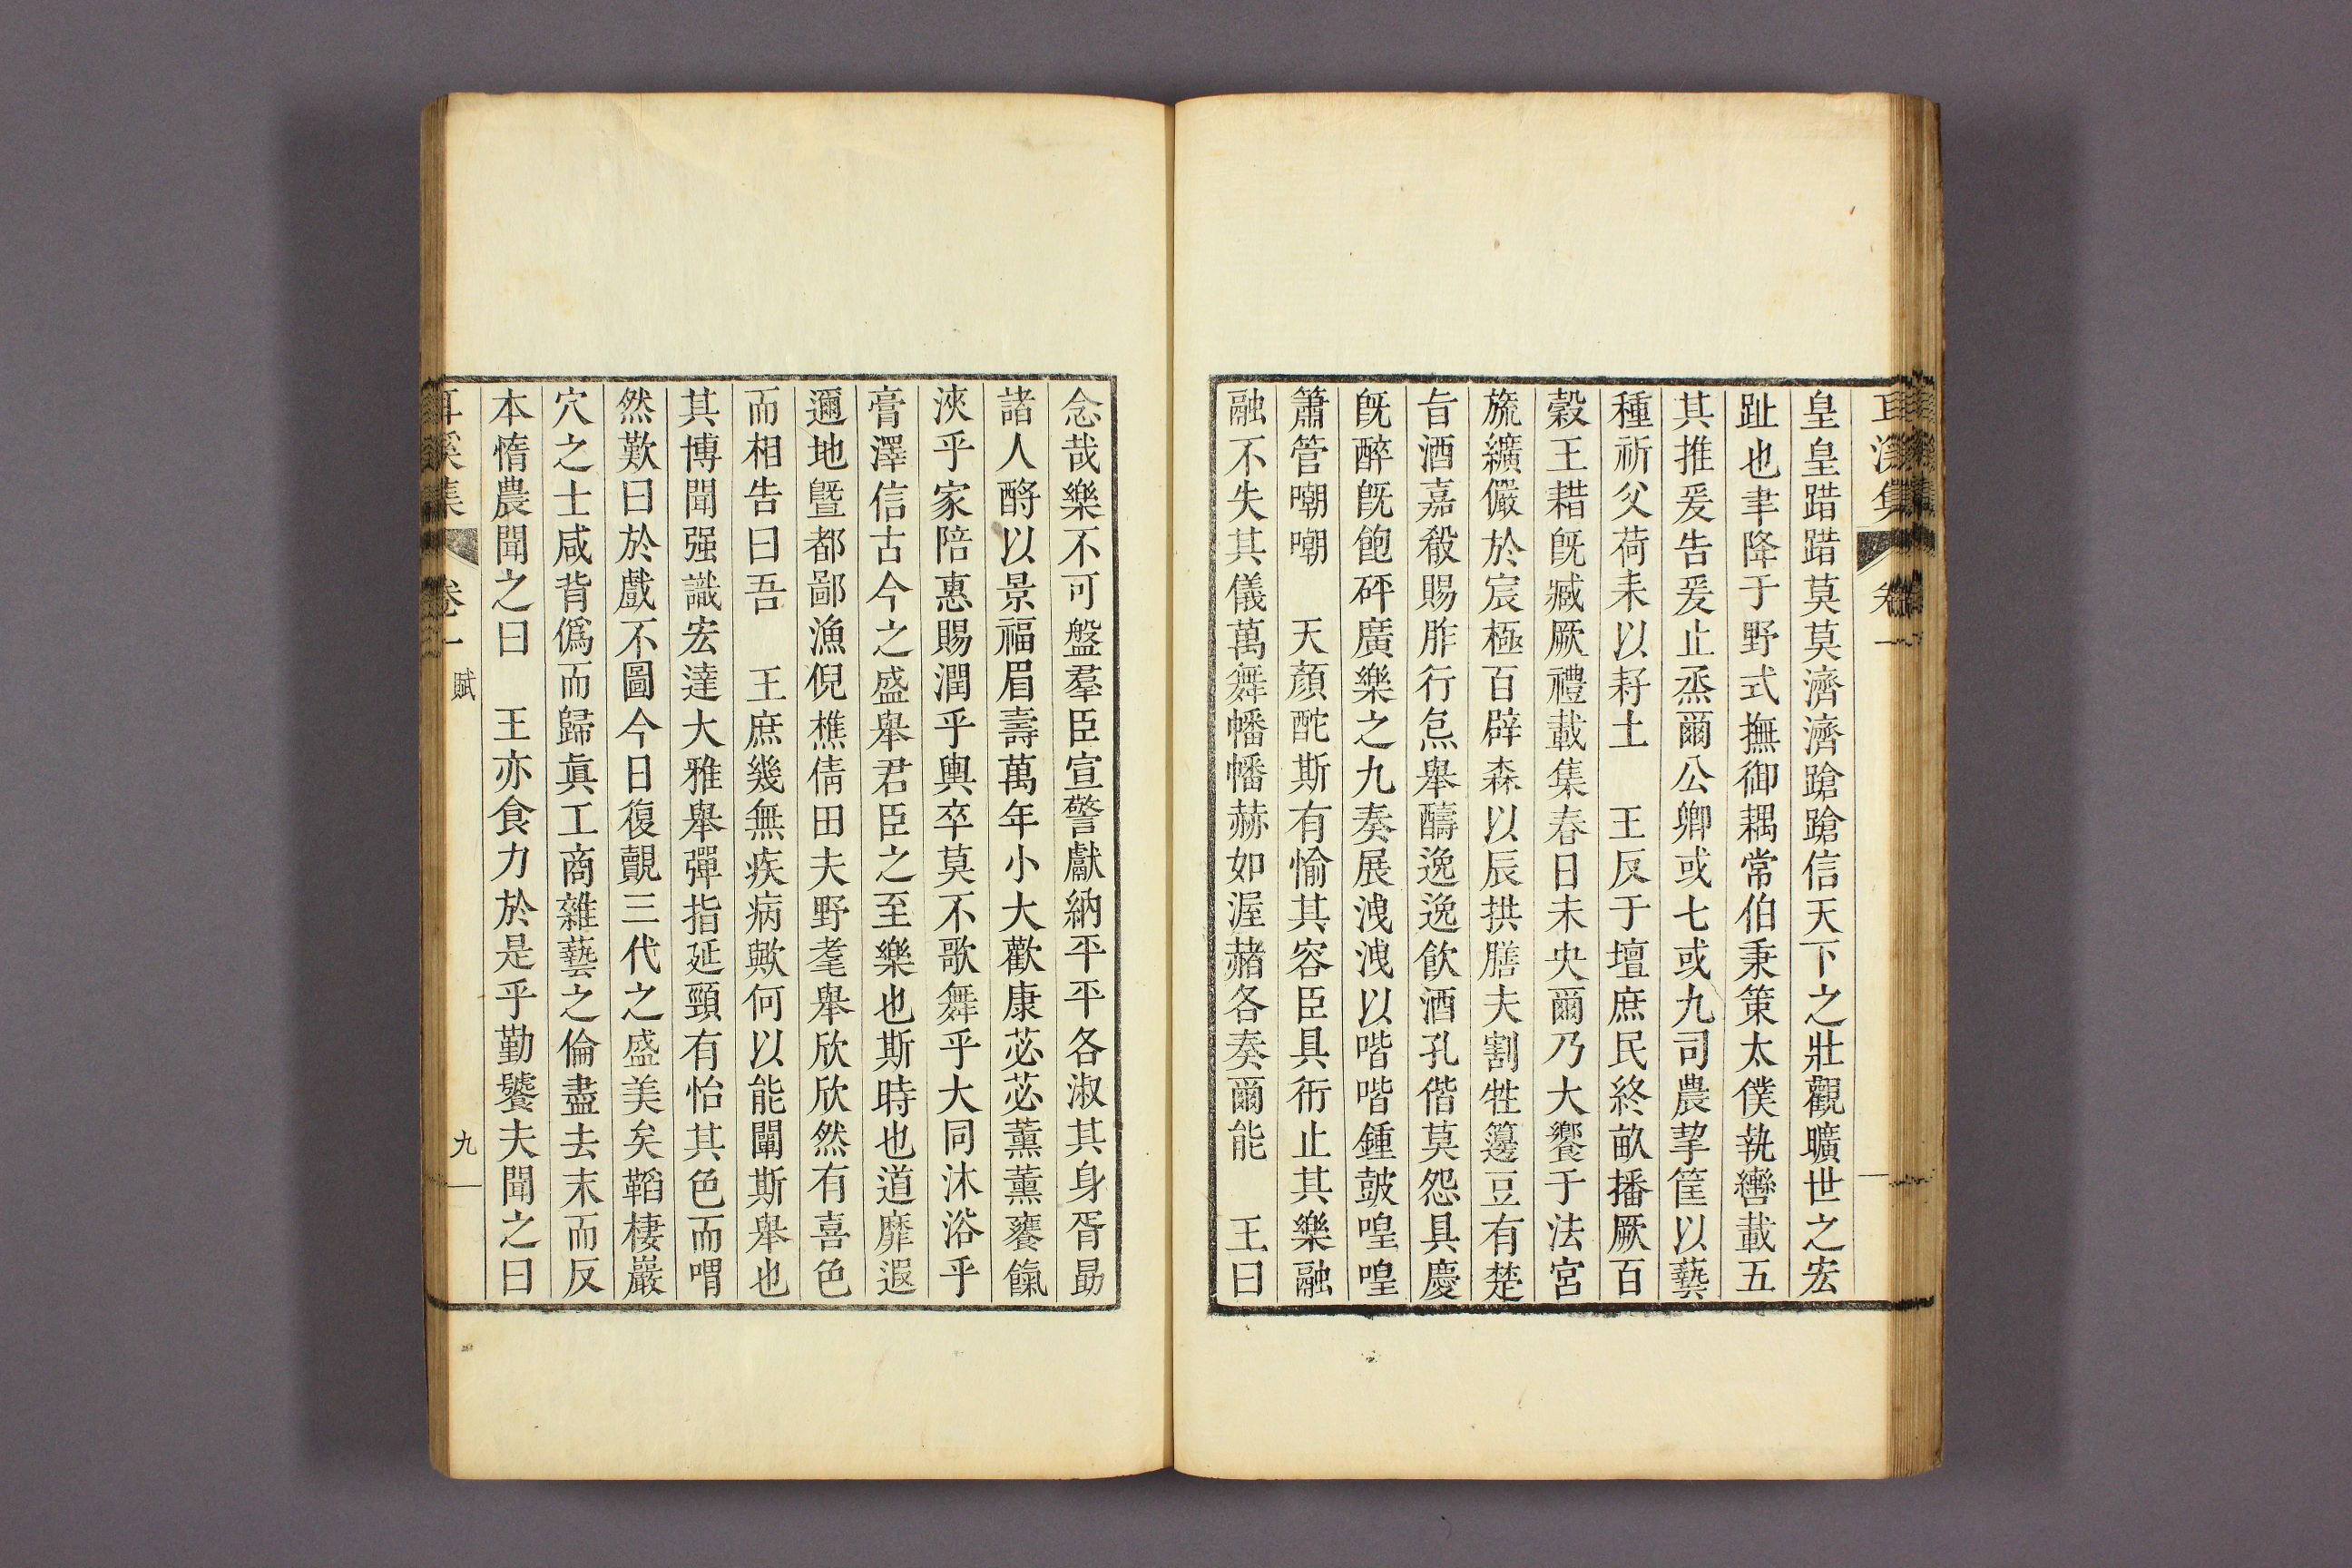 皇皇踖踖莫莫濟濟蹌蹌信天下之壯觀曠世之宏
趾也聿降于野式撫御耦常伯秉策太僕執轡載五
其推爰告爰止烝爾公卿或七或九司農挈筐以藝
種祈父荷耒以耔土　王反于壇庶民終畝播厥百
穀王耤旣臧厥禮載集春日未央爾乃大饗于法宮
旒纊儼於宸極百辟森以辰拱膳夫割牲籩豆有楚
旨酒嘉殽賜胙行炰舉醻逸逸飮酒孔偕莫怨具慶
旣醉旣飽砰廣樂之九奏展洩洩以喈喈鍾鼓喤喤
簫管嘲嘲　天顏酡斯有愉其容臣具衎止其樂融
融不失其儀萬舞幡幡赫如渥赭各奏爾能　王曰
念哉樂不可盤羣臣宣警獻納平平各淑其身胥勗
諸人酹以景福眉壽萬年小大歡康苾苾薰薰饔餼
浹乎家陪惠賜潤乎輿卒莫不歌舞乎大同沐浴乎
膏澤信古今之盛舉君臣之至樂也斯時也道靡遐
邇地曁都鄙漁倪樵倩田夫野耄舉欣欣然有喜色
而相告曰吾　王庶幾無疾病歟何以能闡斯舉也
其博聞强識宏達大雅舉彈指延頸有怡其色而喟
然歎曰於戲不圖今日復覿三代之盛美矣韜棲巖
穴之士咸背僞而歸眞工商雜藝之倫盡去末而反
本惰農聞之曰　王亦食力於是乎勤饕夫聞之曰
耳溪集　卷一　賦　九